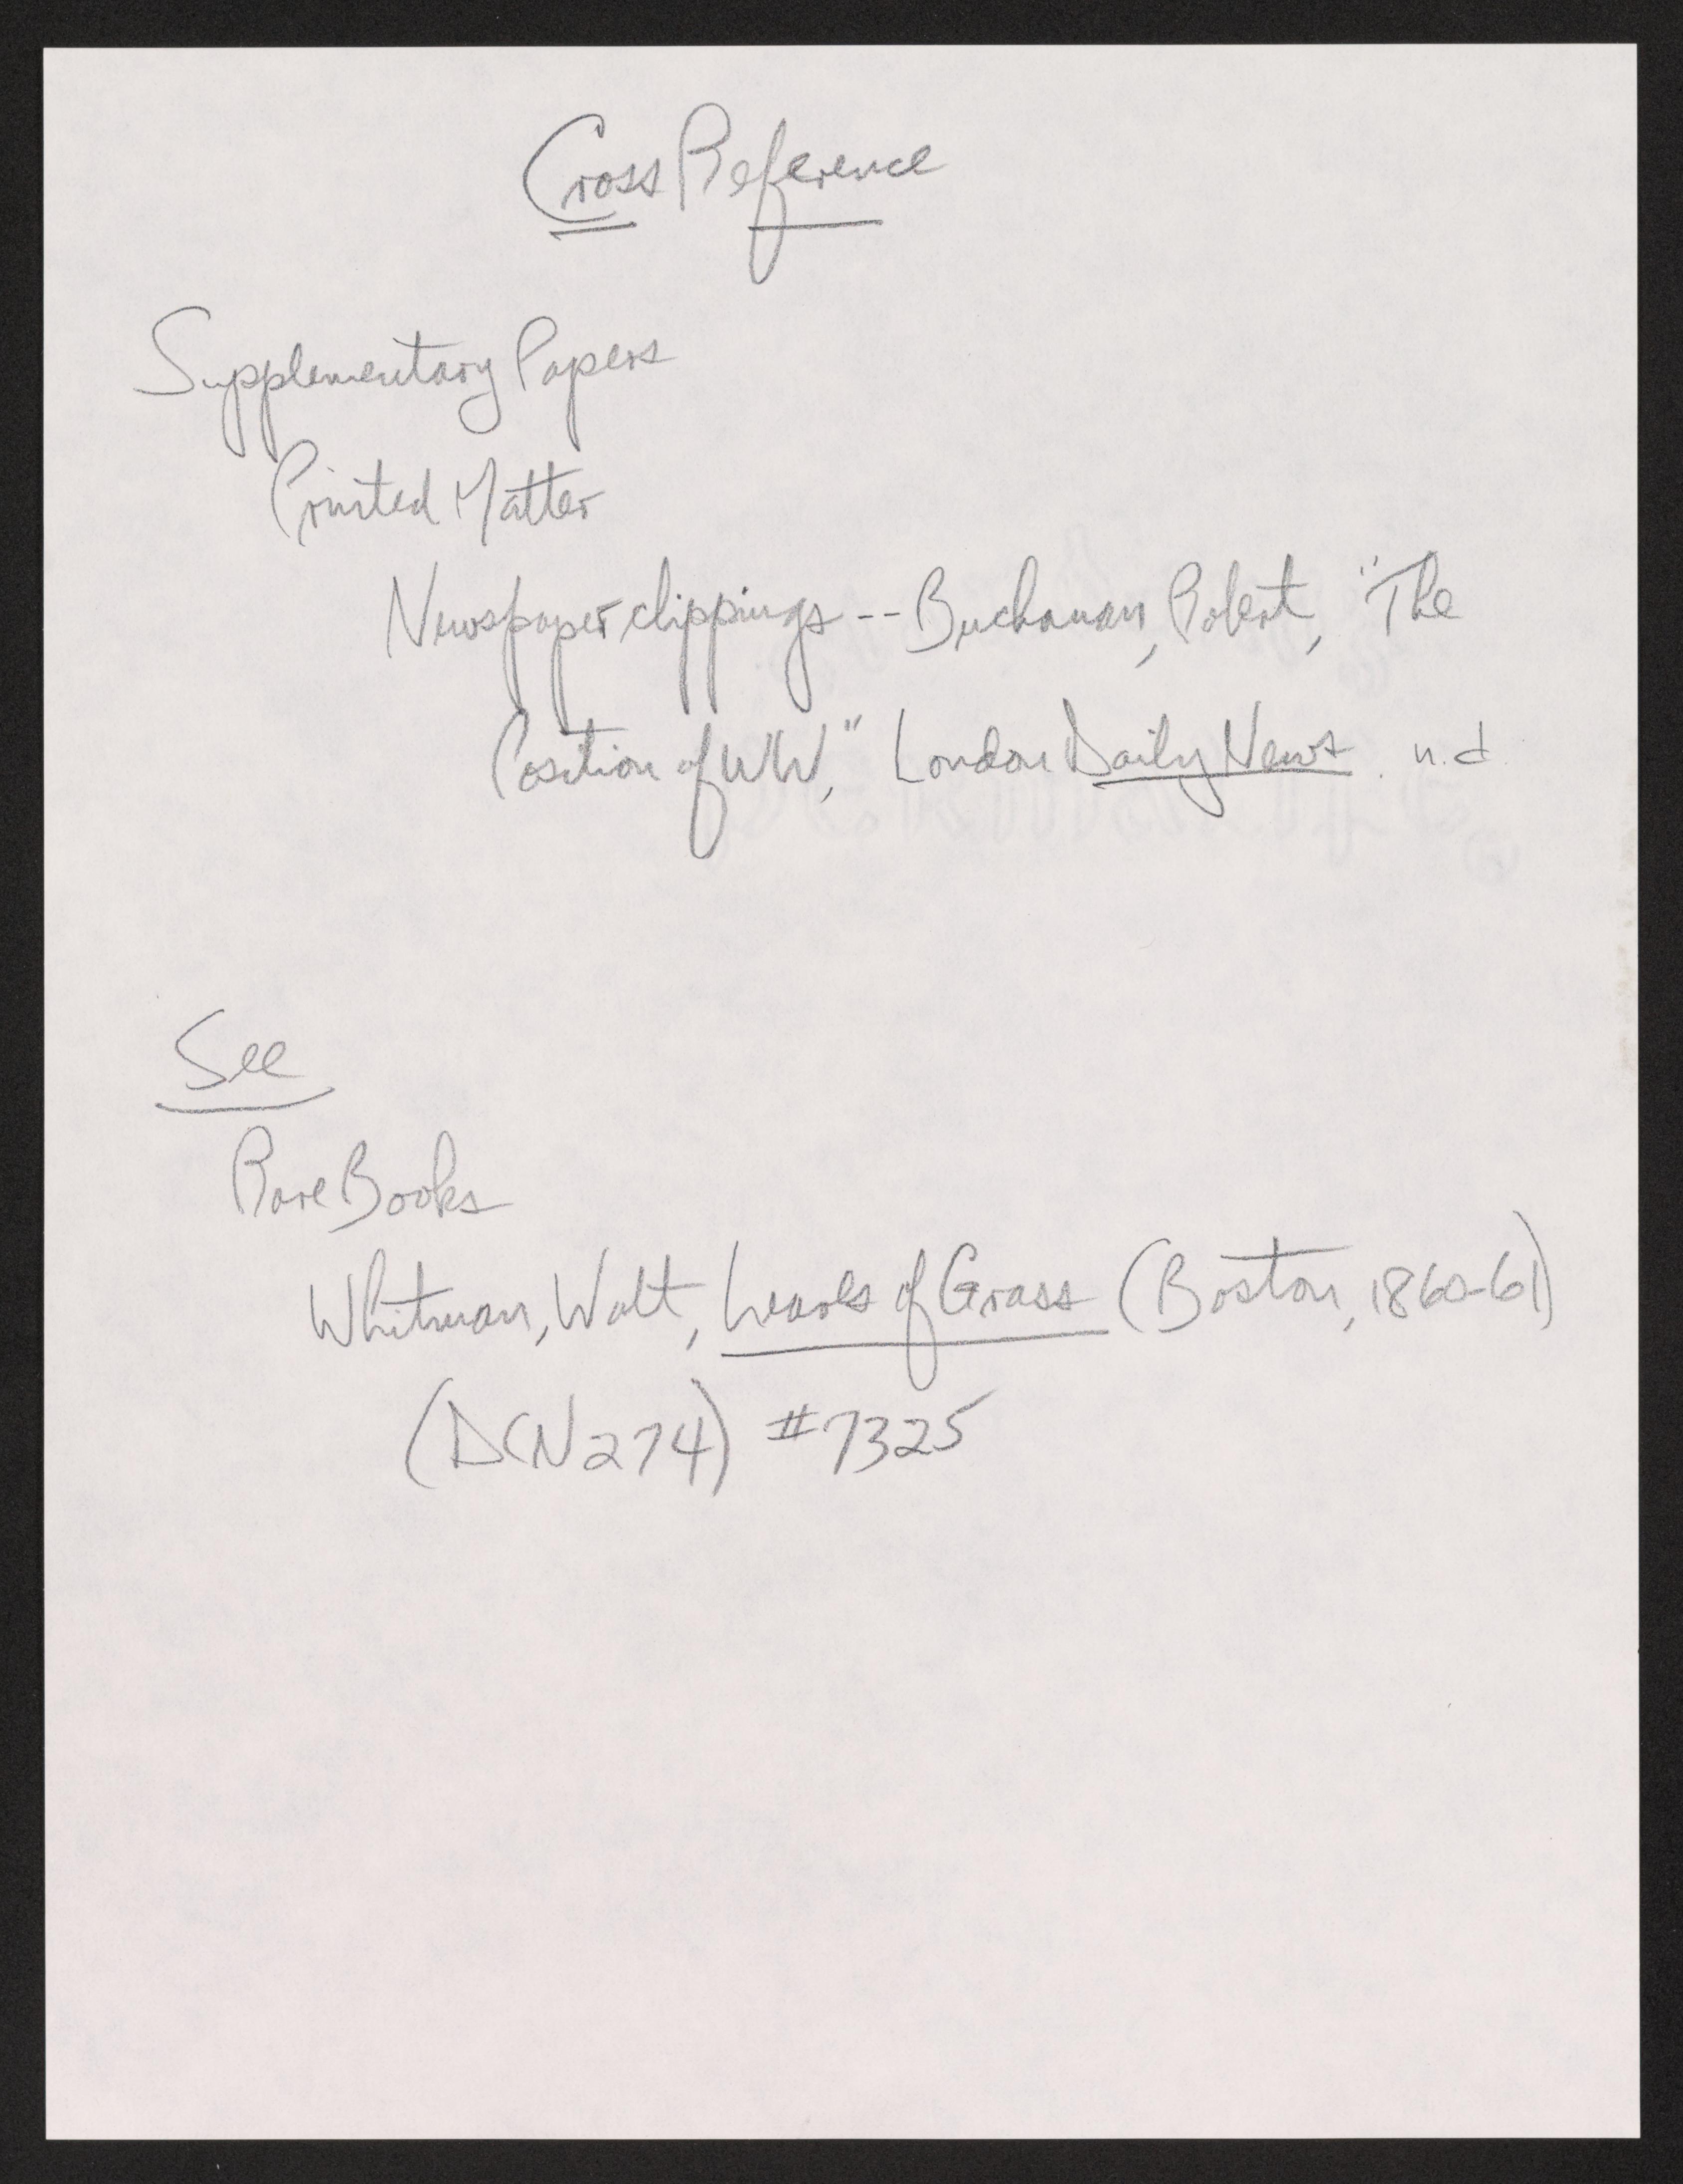 Cross Reference
Supplementary Papers
Printed Matter
Newspaper clippings -- Buchanan, Robert, "The
Position of WW," London Daily News. n.d.
See
Rare Books
Whitman, Walt, Leaves of Grass (Boston, 1860-61)
(DCN274) #7325